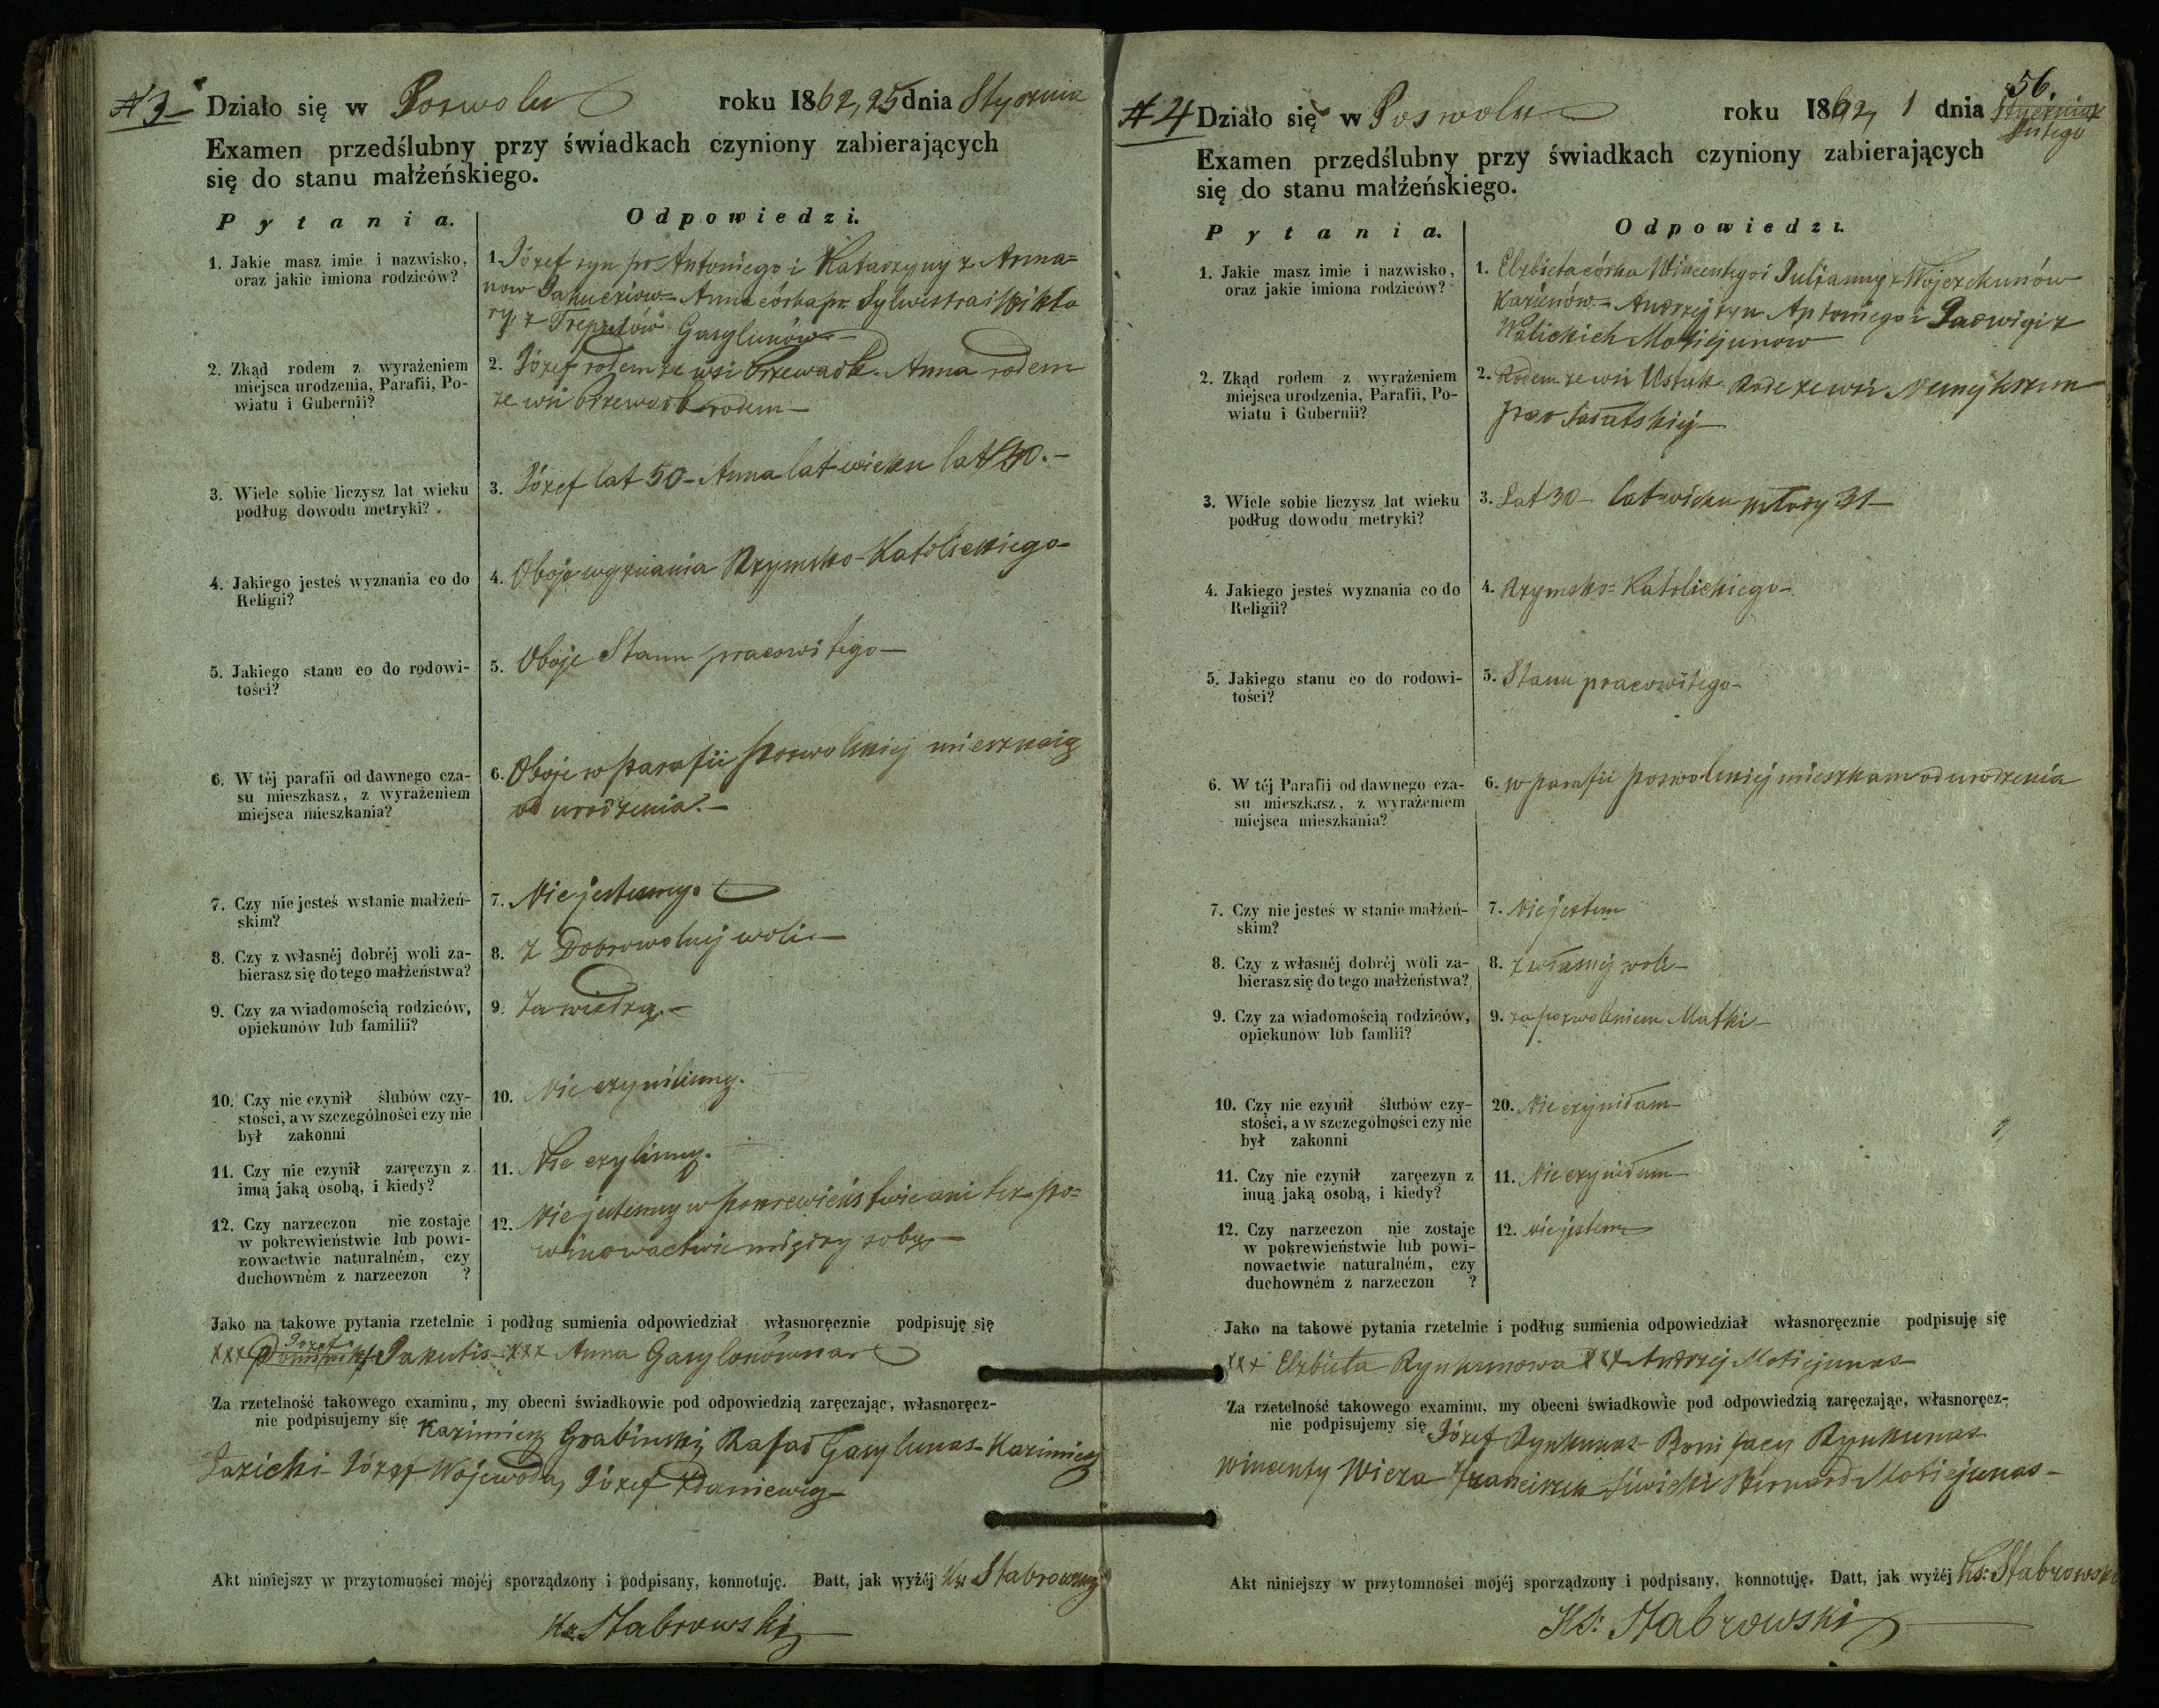 № 3 Działo się w Poswolu roku 1862, 25 dnia Stycznia
Examen przedślubny przy świadkach czyniony zabierających
się do stanu małżeńskiego.
Pytania. Odpowiedzi.
1. Jakie masz imie i nazwisko,
oraz jakie imiona rodziców?
1. Józef syn po Antoniego i Katarzyny z
now Anna córka po Sylwistra i Wikto
ry, z Gasylunów
2. Zkąd rodem z wyrażeniem
miejsca urodzenia, Parafii, Po-
wiatu i Gubernii?
2. Józef rodem ze wsi Anna rodem
ze wsi rodem
3. Wiele sobie liczysz lat wieku
podług dowodu metryki?
3. Józef lat 50 – Anna lat wieku lat
4. Jakiego jesteś wyznania co do
Religii?
4. Oboje wyznania Rzymsko-Katolickiego –
5. Jakiego stanu co do rodowi-
tości?
5. Oboje Stanu pracowitego –
6. W téj parafii od dawnego cza-
su mieszkasz, z wyrażeniem
miejsca mieszkania?
6. Oboje w parafii poswolskiej mieszkaią
od urodzenia. –
7. Czy nie jesteś w stanie małżeń-
skim?
7. Nie jestesmy.
8. Czy z własnéj dobréj woli za-
bierasz się do tego małżeństwa?
8. Z Dobrowolnej woli –
9. Czy za wiadomością rodziców,
opiekunów lub familii?
9. Za wiedzą. –
10. Czy nie czynił ślubów czy-
stości, a w szczególności czy nie
był zakonni
10. Nie czynilismy.
11. Czy nie czynił zaręczyn z
inną jaką osobą, i kiedy?
11. Nie czylismy.
12. Czy narzeczon nie zostaje
w pokrewieństwie lub powi-
nowactwie naturalném, czy
duchowném z narzeczon ?
12. Nie jestesmy w pokrewieństwie ani tez po=
winowactwie między sobą –
Jako na takowe pytania rzetelnie i podług sumienia odpowiedział własnoręcznie podpisuję się
Józef
xxx Dominik Jakutis xxx Anna Gasylonówna
Za rzetelność takowego examinu, my obecni świadkowie pod odpowiedzią zaręczając, własnoręcz-
nie podpisujemy się Kazimierz Grabinski, Rafał Gasylunas – Kazimierz
Józef Wojewoda, Józef Zdaniewicz –
Akt niniejszy w przytomności mojéj sporządzony i podpisany, konnotuję. Datt, jak wyżéj Kx Stabrowski
Kx. Stabrowski
56.
№ 4 Działo się w Poswolu roku 1862, 1 dnia Stycznia
Lutego
Examen przedślubny przy świadkach czyniony zabierających
się do stanu małżeńskiego.
Pytania. Odpowiedzi.
1. Jakie masz imie i nazwisko,
oraz jakie imiona rodziców?
1. Elzbieta córka Wincentego i Julianny z Wojczekunów
Andrzej syn Antoniego i Jadwigi z
Walickich Motiejunow
2. Zkąd rodem z wyrażeniem
miejsca urodzenia, Parafii, Po-
wiatu i Gubernii?
2. Rodem ze wsi Ustuk Rode ze wsi
par
3. Wiele sobie liczysz lat wieku
podług dowodu metryki?
3. Lat 30 – lat wieku młody 31 –
4. Jakiego jesteś wyznania co do
Religii?
4. Rzymsko=Katolickiego –
5. Jakiego stanu co do rodowi-
tości?
5. Stanu pracowitego –
6. W téj Parafii od dawnego cza-
su mieszkasz, z wyrażeniem
miejsca mieszkania?
6. w parafii poswolskiej mieszkam od urodzenia
7. Czy nie jesteś w stanie małżeń-
skim?
7. Nie jestem
8. Czy z własnéj dobréj woli za-
bierasz się do tego małżeństwa?
8. z własnej woli –
9. Czy za wiadomością rodziców,
opiekunów lub famlii?
9. za pozwoleniem Matki –
10. Czy nie czynił ślubów czy-
stości, a w szczególności czy nie
był zakonni
20. Nie czyniłam –
11. Czy nie czynił zaręczyn z
inuą jaką osobą, i kiedy?
11. Nie czyniłam –
12. Czy narzeczon nie zostaje
w pokrewieństwie lub powi-
nowactwie naturalném, czy
duchowném z narzeczon ?
12. Nie jestem
Jako na takowe pytania rzetelnie i podług sumienia odpowiedział własnoręcznie podpisuję się
xxx Elzbieta Rynkunowa xxx Andrzej Motiejunas –
Za rzetelność takowego examinu, my obecni świadkowie pod odpowiedzią zaręczając, własnoręcz-
nie podpisujemy się Józef Rynkunas – Bonifacy Rynkunas –
Wincenty Wiera Franciszek Bernard Motiejunas –
Akt niniejszy w przytomności mojéj sporządzony i podpisany, konnotuję. Datt, jak wyżéj Ks: Stabrowski
KS: Stabrowski